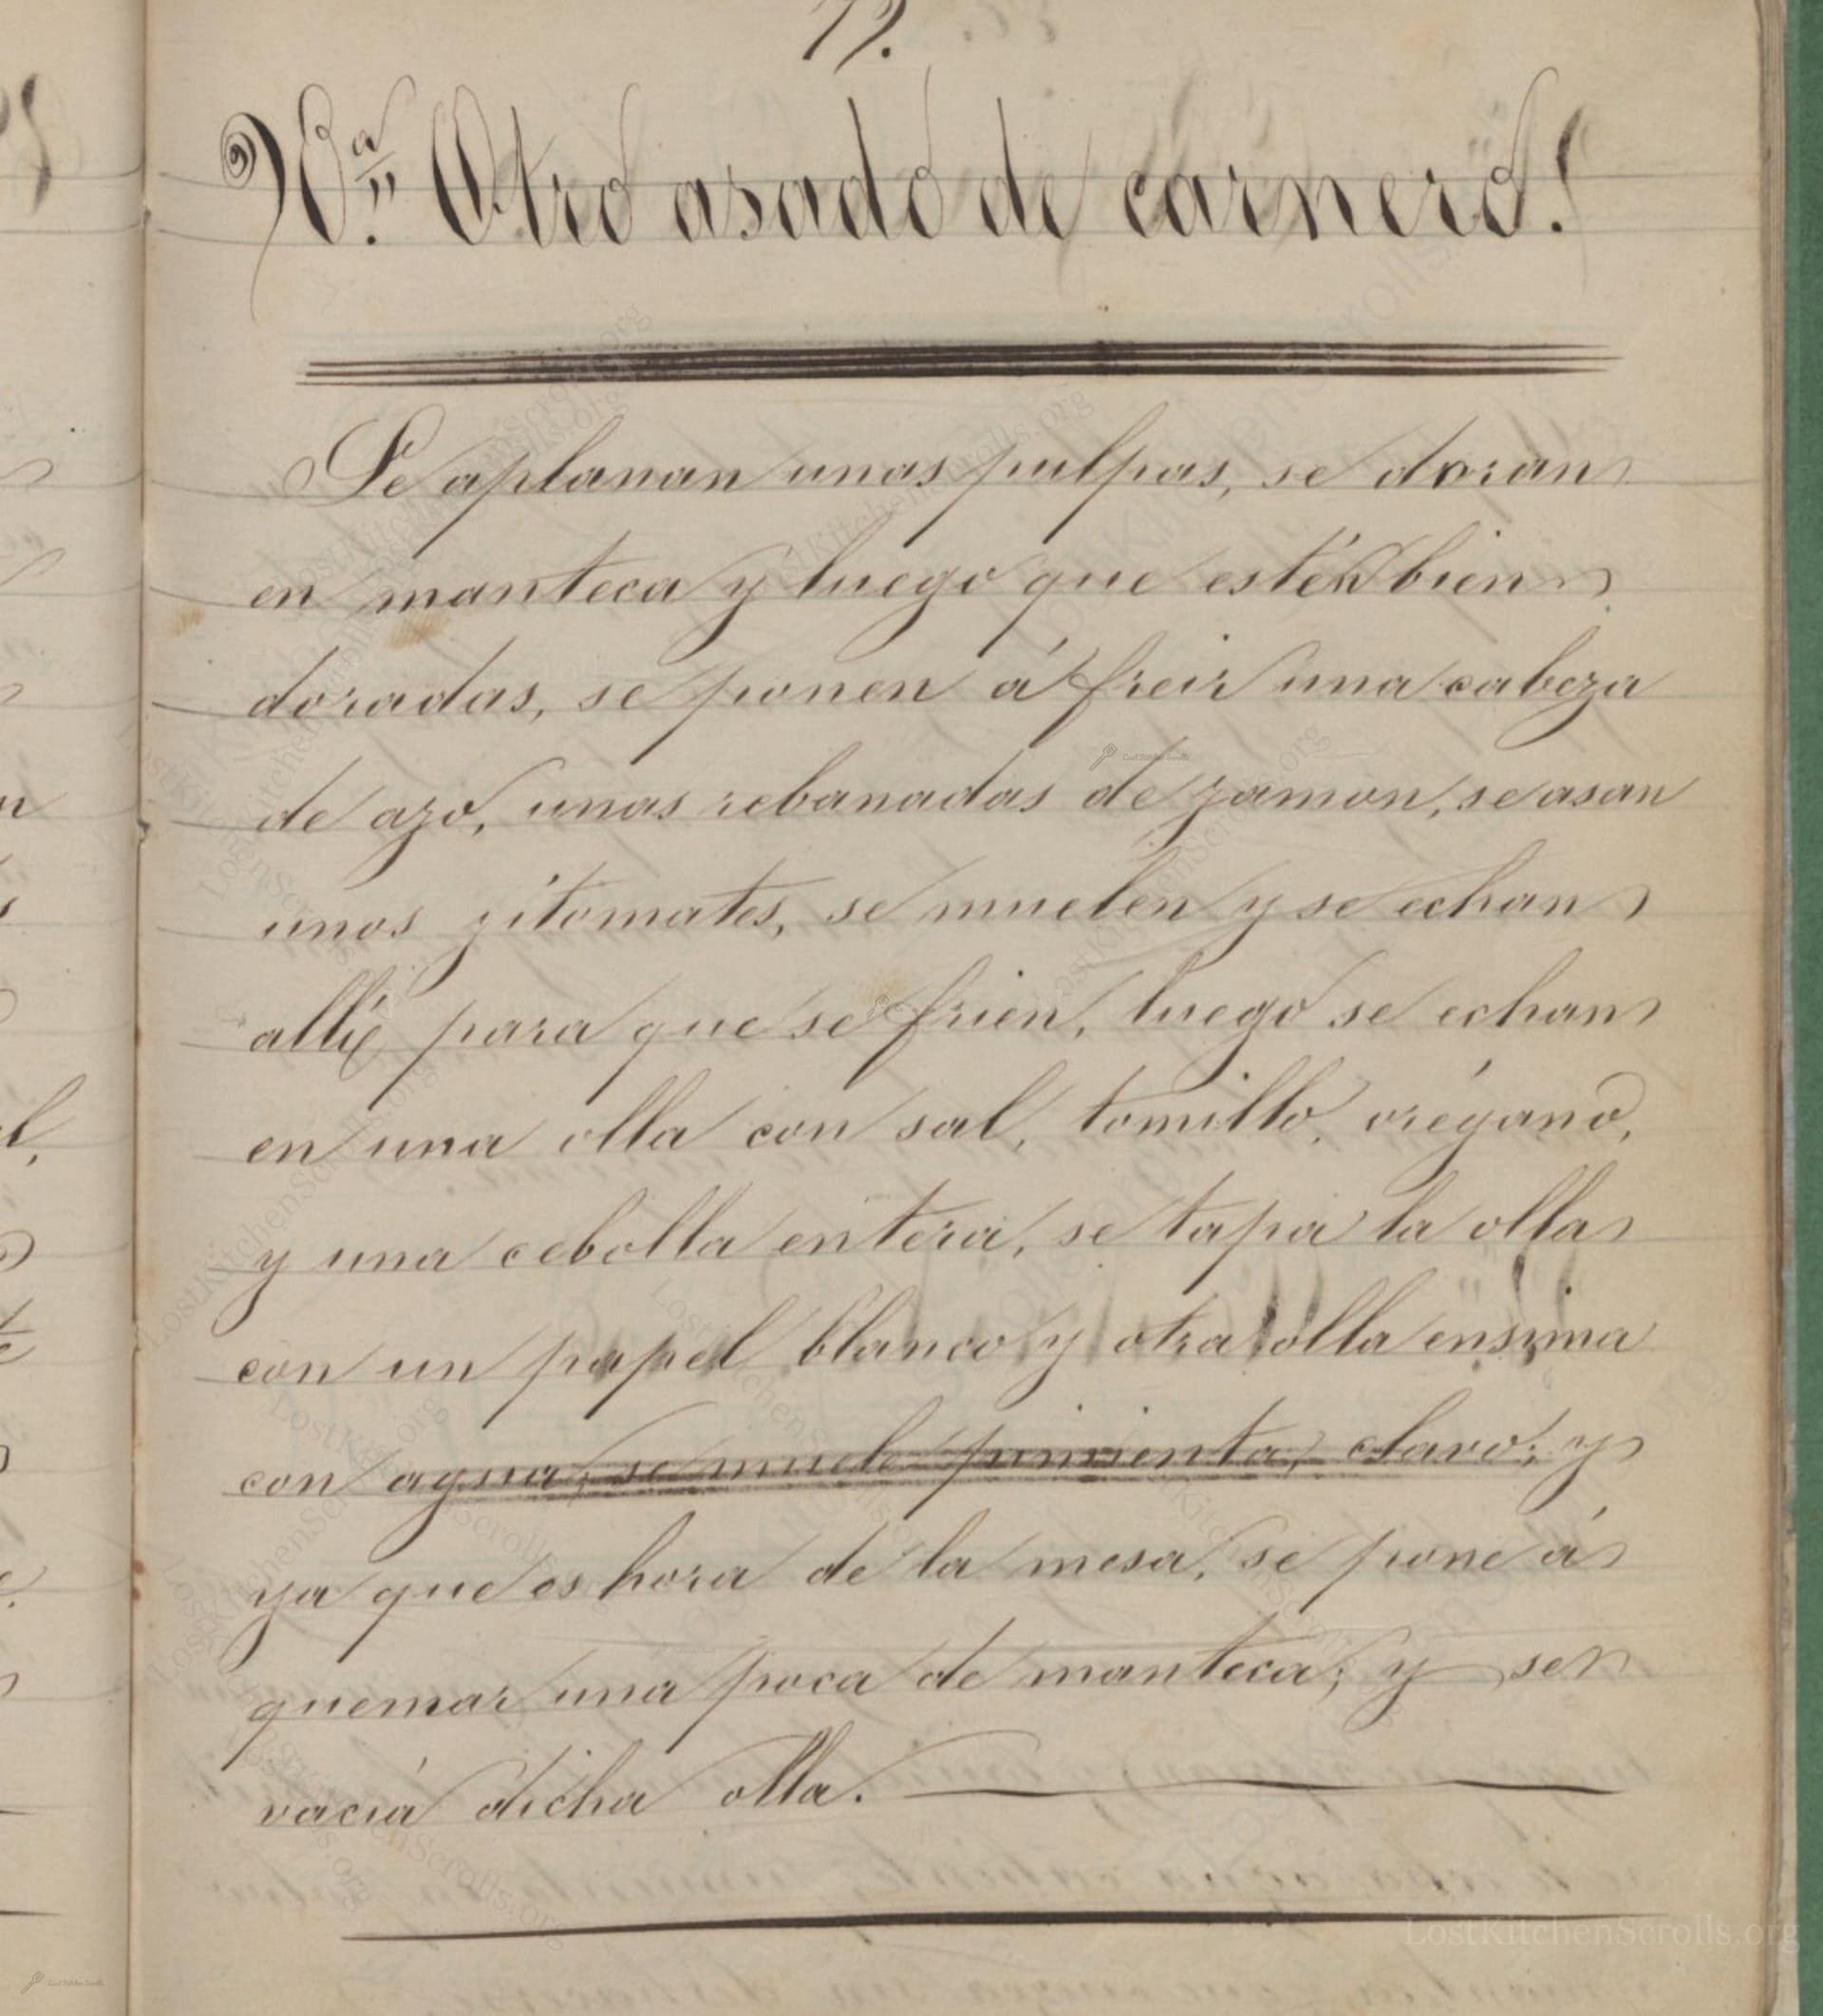 79.
Wª. Otro asado de carnero.
Se aplanan unas pulpas, se doran
en manteca y luego que estén bien
doradas, se ponen á freir una cabeza
de azo, unas rebanadas de zamon, se asan
unos zitomates, se muelen y se echan
allí para que se frien, luego se echan
en una olla con sal, tomillo, orégano,
y una cebolla entera, se tapa la olla
con un papel blanco y otra olla ensima
con agua, se muele pimienta, clavo; y
ya que es hora de la mesa, se pone á
quemar una poca de manteca; y se
vacia dicha olla.
LostKitchenScrolls.org